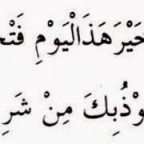 خَيْرَ هَذَا لْيَوْمِ فَتْحَ
وْذُبِكَ مِنْ شَرِ